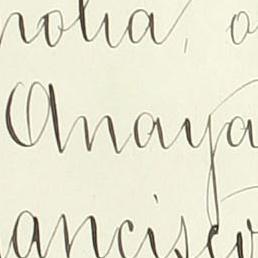 nolia, o
Anaya
ancisco